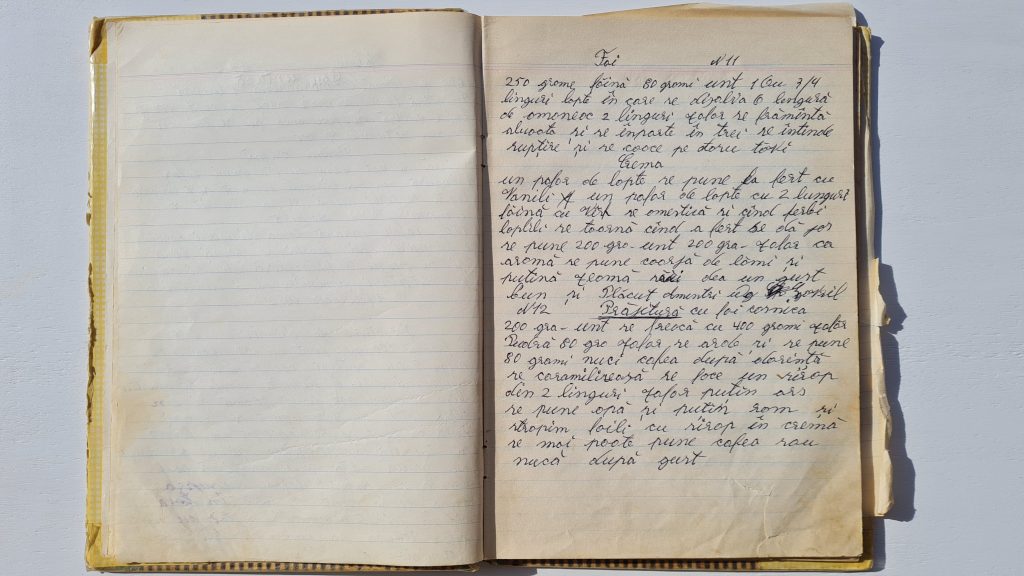 Foi N 11
250 grame făină 80 grami unt 1 Ou 3/4
linguri lapte în care se disolvă 6 lingură
de amoneac 2 linguri zafar se frămîntă
aluoatu și se înparte în trei se întinde
supțire și se coace pe dosu tăvi
Crema
un pafar de lapte se pune la fert cu
Vanili un pafar de lapte cu 2 lunguri
făină cu se amestică si cînd ferbi
laptili se toarnă cînd a fert se dă jos
se pune 200 gra- unt 200 gra- zafar ca
aromă se pune coarjă de lămi si
puțină zeamă să-i dea un gust
bun și Plăcut
N12 Prăjitură cu foi cornica
200 gra- unt se freacă cu 400 grami zafar
Pudră 80 gra zafar se arde și se pune
80 grami nuci cafea după dorință
se caramilirează se face un sirop
din 2 linguri zafar puțin ars
se pune apă și puțin rom și
stropim foili cu sirop în cremă
se mai poate pune cafea sau
nucă după gust